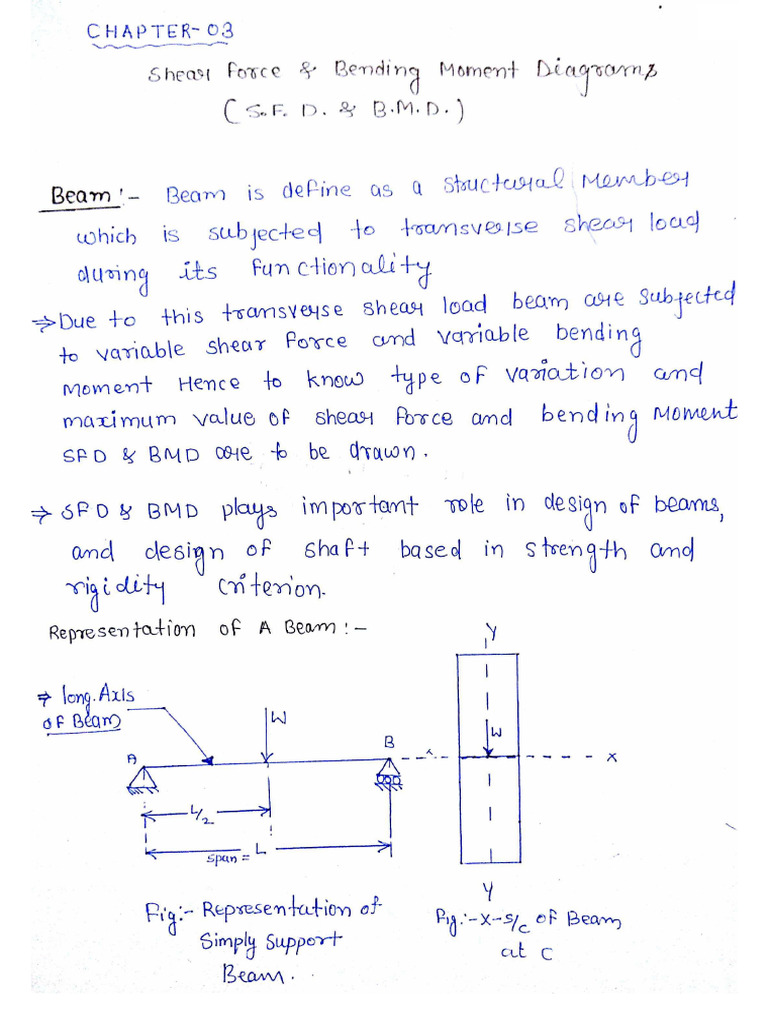 CHAPTER-03
Shear Force & Bending Moment Diagrams
(S.F. D. & B.M.D.)
Beam :- Beam is define as a structural Member
which is subjected to transverse shear load
during its functionality
⇒ Due to this transverse shear load beam are subjected
to variable shear force and variable bending
Moment Hence to know type of variation and
maximum value of shear force and bending Moment
SFD & BMD are to be drawn.
⇒ SFD & BMD plays important role in design of beams,
and design of shaft based in strength and
rigidity criterion.
Representation of A Beam :-
⇒ long. Axis
of Beam
W
A
B
L/2
span = L
Y
W
x
x
Y
Fig:- Representation of
Simply Support
Beam.
Fig:- X-S/C of Beam
at C